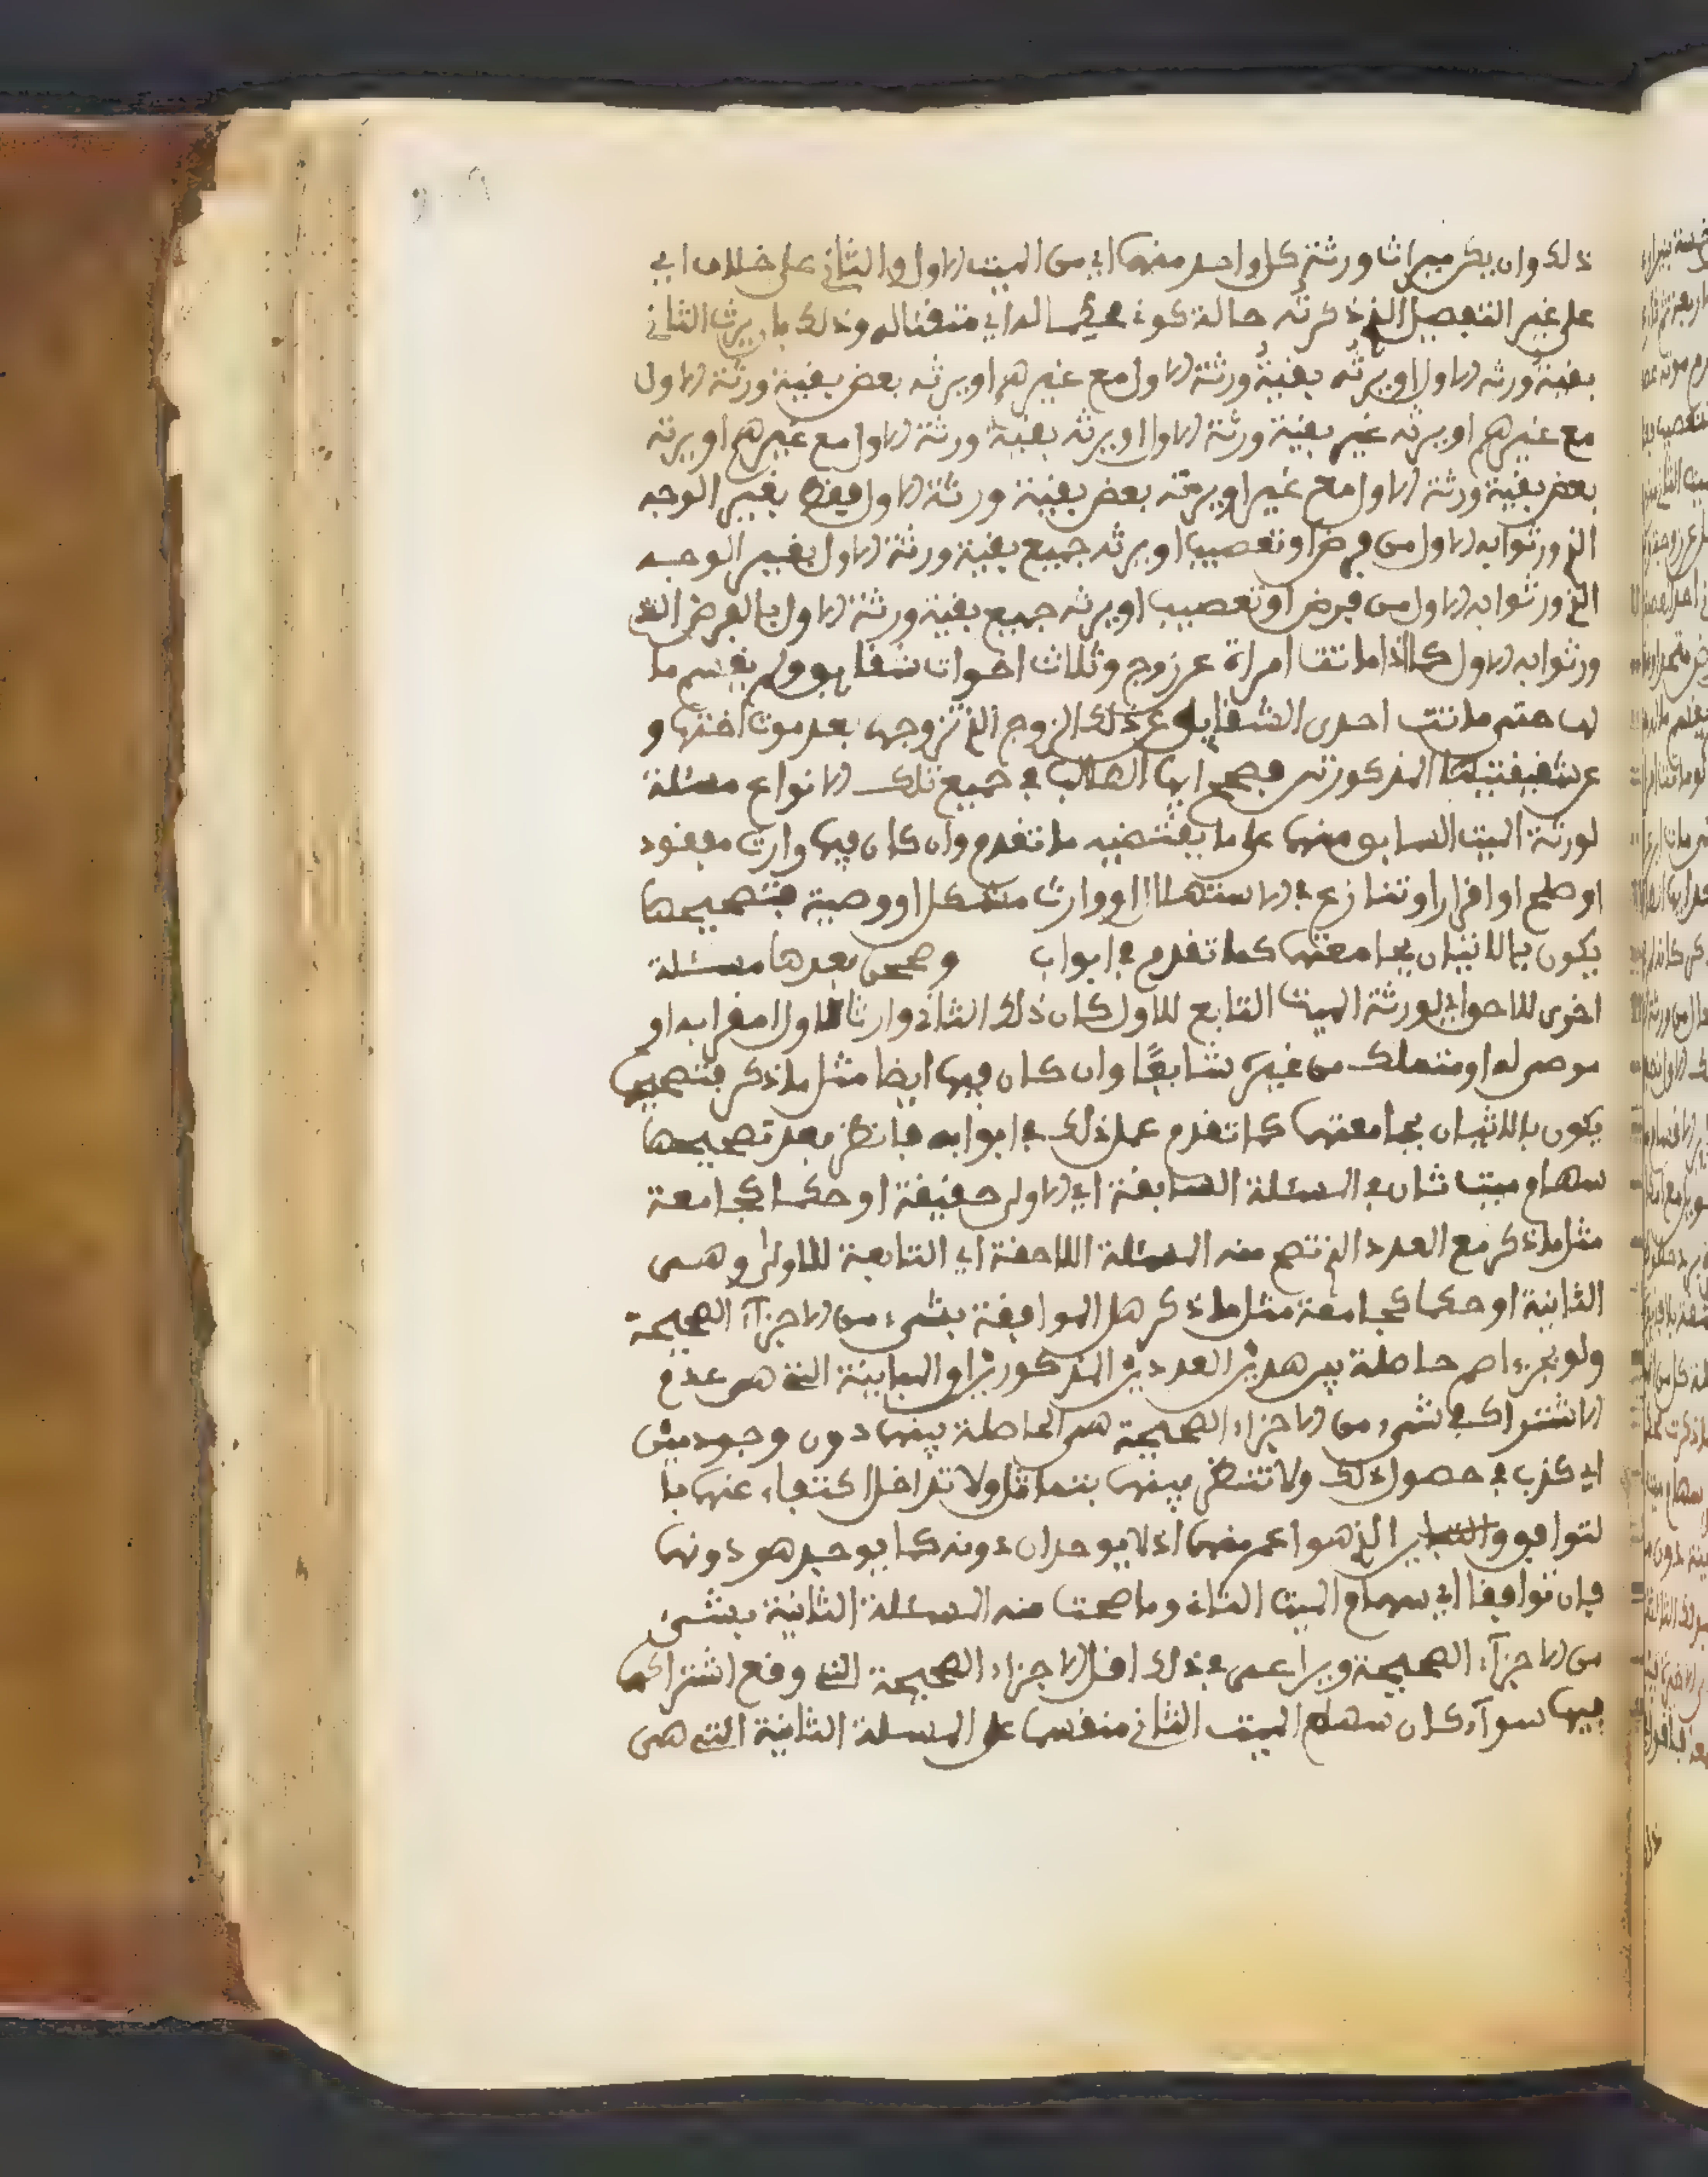 ذلك وان يكن ميراث ورثة كل واحد منهما اي من الميت الاول والثاني على خلاف اي
على غير التفصيل الذي ذكرته حالة كونه محكما له اي متقنا له وذلك بان يرث الثاني
بقية ورثة الاول او يرثه بقية ورثة الاول مع غيرهم او يرثه بعض بقية ورثة الاول
مع غيرهم او يرثه غير بقية ورثة الاول او يرثه بقية ورثة الاول مع غيرهم او يرثه
بعض بقية ورثة الاول مع غير او يرثه بعض بقية ورثة الاول فقط بغير الوجه
الذي ورثوا به الاول من فرض او تعصيب او يرثه جميع بقية ورثة الاول بغير الوجه
الذي ورثوا به الاول من فرض او تعصيب او يرثه جميع بقية ورثة الاول بالفرض الذي
ورثوا به الاول كما اذا ماتت امراة عن زوج وثلاث اخوات شقايق ولم يقسم ما
لها حتى ماتت احدى الشقايق عن ذلك الزوج الذي تزوجها بعد موت اختها و
عن شقيقتيها المذكورتين فصحح ايها الطالب في جميع تلك الانواع مسئلة
لورثة الميت السابق منهما على ما يقتضيه ما تقدم وان كان فيها وارث مفقود
او صلح او اقرار او تنازع في الاستهلال او وارث مشكل او وصية فتصحيحها
يكون بالاتيان بجامعتها كما تقدم في ابواب وصححن بعدها مسئلة
اخرى للاحق اي لورثة الميت التابع للاول كان ذلك الثاني وارثا للاول او مقرا به او
موصى له او متملك من غيره شايعًا وان كان فيها ايضا مثل ما ذكر فتصحيحها
يكون بالاتيان بجامعتها كما تقدم عمل ذلك في ابوابه فانظر بعد تصحيحها
سهام ميت ثان في المسئلة السابقة اي الاولى حقيقة او حكما كجامعة
مثل ما ذكر مع العدد الذي تصح منه المسئلة اللاحقة اي التابعة للاولى وهى
الثانية او حكما كجامعة مثل ما ذكر هل الموافقة بشيء من الاجزآء الصحيحة
ولو بجزء اصم حاصلة بين هذين العددين المذكورين او المباينة التي هى عدم
الاشتراك في شيء من الاجزاء الصحيحة هى الحاصلة بينهما دون وجود مين
اي كذب في حصول ذلك ولا تنظر بينهما بتماثل ولا تداخل اكتفاء عنهما با
لتوافق والتباين الذي هو اعم منهما اذ لا يوجدان دونه كما يوجد هو دونهما
فان توافقا اي سهام الميت الثاني وما صحت منه المسئلة الثانية بشيء
من الاجزآء الصحيحة ويراعى في ذلك اقل الاجزاء الصحيحة التي وقع اشتراكهما
فيها سوآء كان سهام الميت الثاني منقسما على المسئلة الثانية التي هى